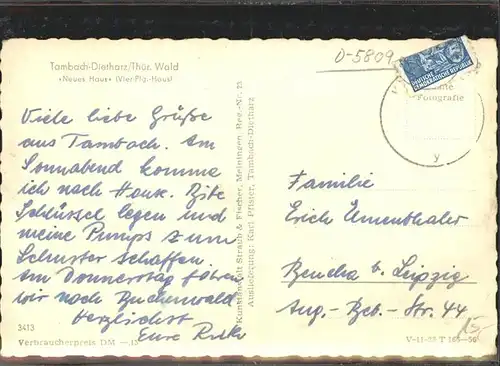 Tambach-Dietharz/Thür. Wald
»Neues Haus« (Vier-Plg.-Haus)
Viele liebe Grüße
aus Tambach. Am
Sonnabend komme
ich nach Hause. Bitte
Schlüssel legen und
meine Pumps zum
Schuster schaffen.
Am Donnerstag fahren
wir nach Buchenwald
Herzlichst
Eure Ruth
3413
Verbraucherpreis DM —,15
Kunstanstalt Straub & Fischer, Meiningen Reg.-Nr. 23
Auslieferung: Karl Pfister, Tambach-Dietharz
0-5809
DEUTSCHE
DEMOKRATISCHE REPUBLIK
Fotografie
y
Familie
Erich Umenthaler
Beucha b. Leipzig
Aug.-Beb.-Str. 44
15,-